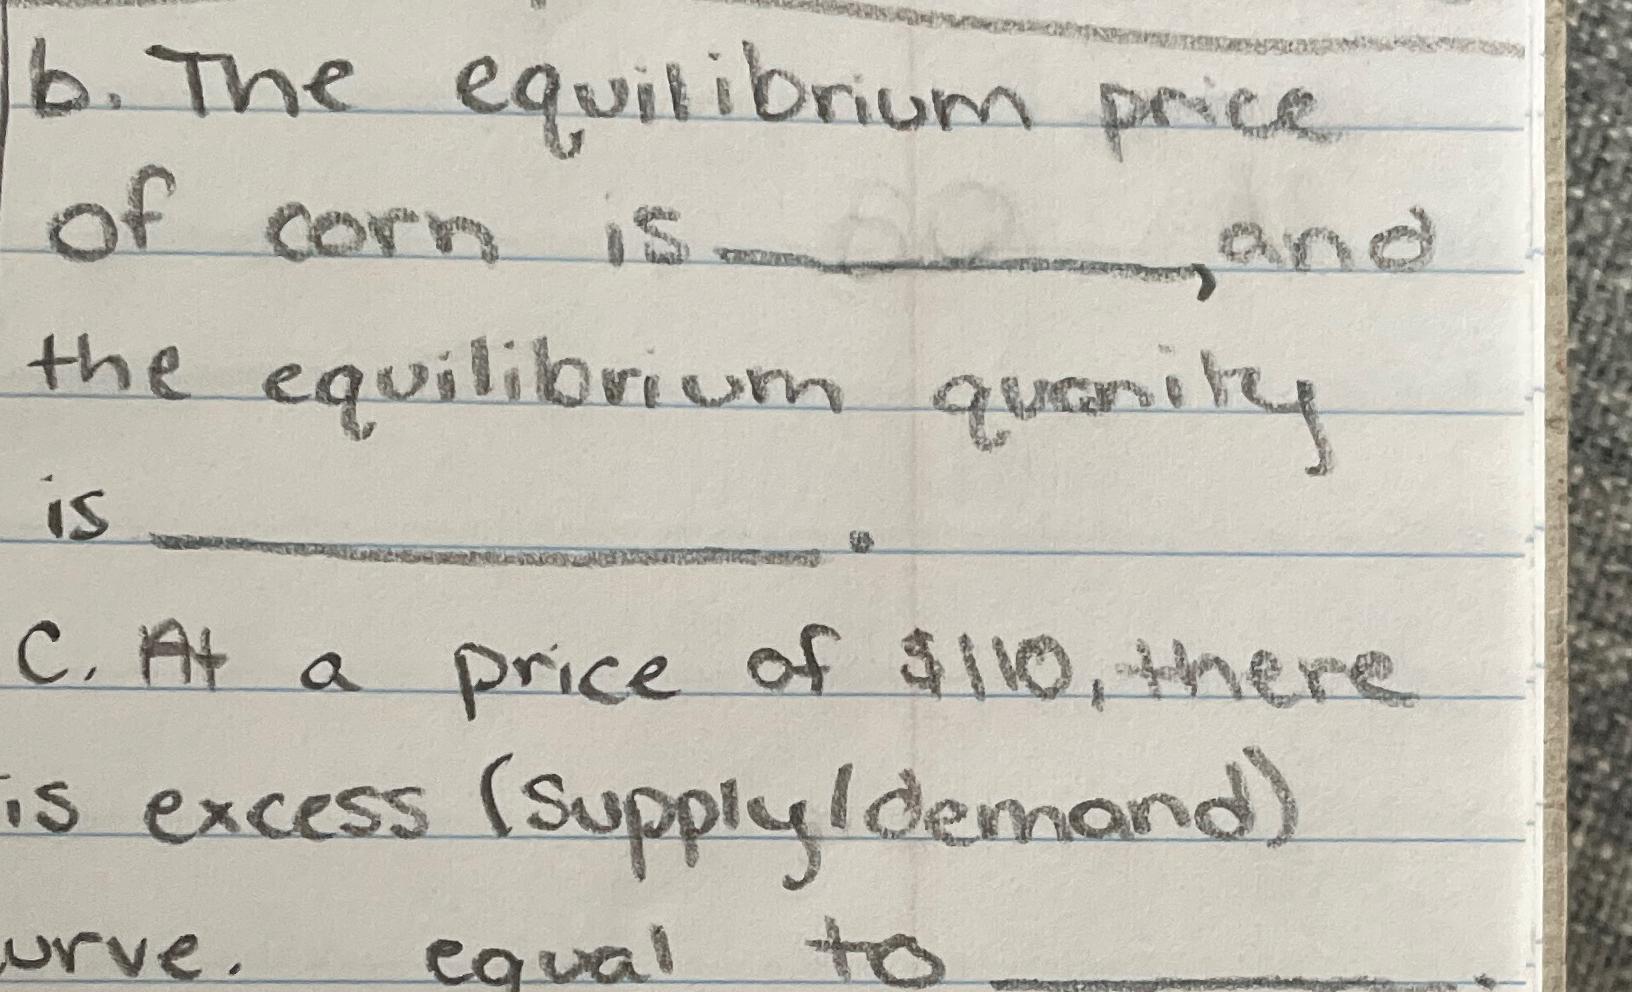 b. The equilibrium price
of corn is ________, and
the equilibrium quanity
is ____________.
C. At a price of $110, there
is excess (supply/demand)
urve. equal to ________.